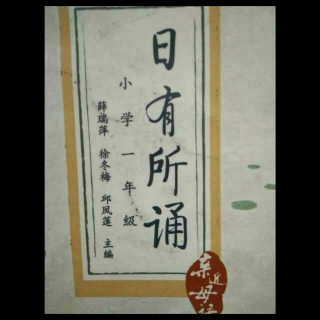 日有所诵
小学一年级
薛瑞萍 徐冬梅 邱凤莲 主编
亲近母语